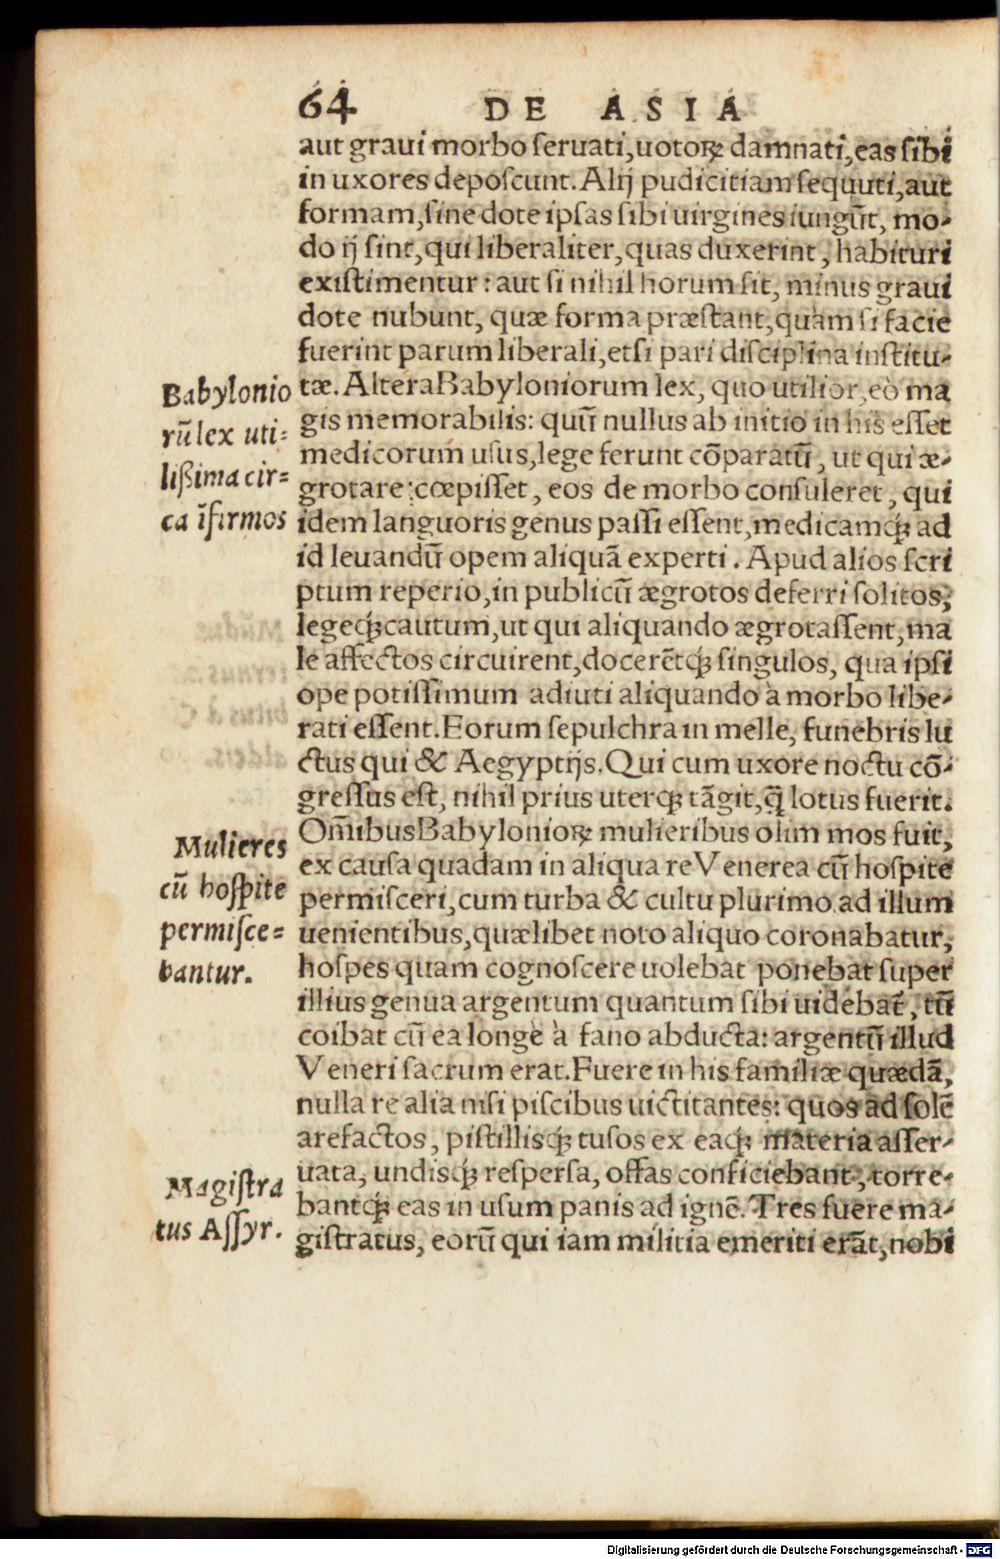 64 DE ASIA
aut graui morbo ſeruati, uotoꝝ damnati, eas ſibi
in uxores depoſcunt. Alij pudicitiam ſequuti, aut
formam, ſine dote ipſas ſibi uirgines iungūt, mo-
do ij ſint, qui liberaliter, quas duxerint, habituri
exiſtimentur: aut ſi nihil horum ſit, minus graui
dote nubunt, quæ forma præſtant, quàm ſi facie
fuerint parum liberali, etſi pari diſciplina inſtitu-
tæ. Altera Babyloniorum lex, quo utilior, eò ma
gis memorabilis: quū nullus ab initio in his eſſet
medicorum uſus, lege ferunt cōparatū, ut qui æ-
grotare cœpiſſet, eos de morbo conſuleret, qui
idem languoris genus paſſi eſſent, medicamq́ꝫ ad
id leuandū opem aliquā experti. Apud alios ſcri
ptum reperio, in publicū ægrotos deferri ſolitos,
legeq́ꝫ cautum, ut qui aliquando ægrotaſſent, ma
le affectos circuirent, docerētq́ꝫ ſingulos, qua ipſi
ope potiſſimum adiuti aliquando à morbo libe-
rati eſſent. Eorum ſepulchra in melle, funebris lu
ctus qui & Aegyptijs. Qui cum uxore noctu cō-
greſſus eſt, nihil prius uterq́ꝫ tāgit, q̄ lotus fuerit.
Om̄ibus Babylonioꝝ mulieribus olim mos fuit,
ex cauſa quadam in aliqua re Venerea cū hoſpite
permiſceri, cum turba & cultu plurimo ad illum
uenientibus, quælibet noto aliquo coronabatur,
hoſpes quam cognoſcere uolebat ponebat ſuper
illius genua argentum quantum ſibi uidebat̄, tū
coibat cū ea longè à fano abducta: argentū illud
Veneri ſacrum erat. Fuere in his familiæ quædā,
nulla re alia niſi piſcibus uictitantes: quos ad ſolē
arefactos, piſtillisq́ꝫ tuſos ex eaq́ꝫ materia aſſer-
uata, undisq́ꝫ reſperſa, offas conficiebant, torre-
bantq́ꝫ eas in uſum panis ad ignē. Tres fuere ma-
giſtratus, eorū qui iam militia emeriti erāt, nobi
Babylonio
rū lex uti-
lißima cir-
ca īfirmos
Mulieres
cū hoſpite
permiſce-
bantur.
Magiſtra
tus Aſſyr.
Digitalisierung gefördert durch die Deutsche Forschungsgemeinschaft - DFG